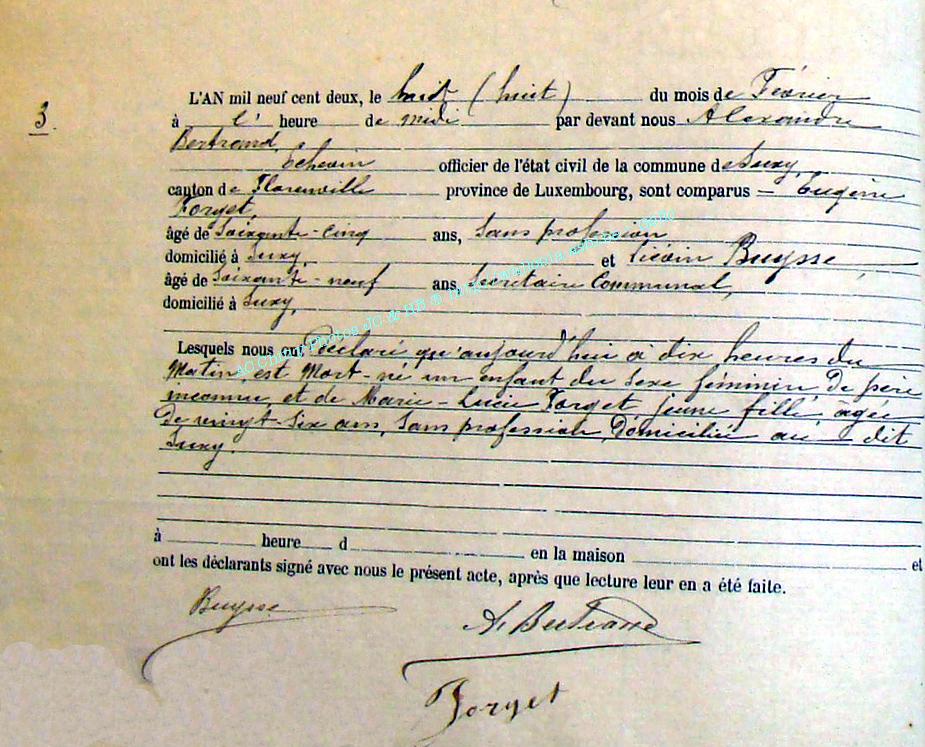 3.
L'AN mil neuf cent deux, le huit (huit) du mois de Février
à l' heure de midi par devant nous Alexandre
Bertrand,
échevin officier de l'état civil de la commune de Suxy,
canton de Florenville province de Luxembourg, sont comparus — Eugène
Forget,
âgé de Soixante-cinq ans, Sans profession
domicilié à Suxy, et Liévin Buysse,
âgé de Soixante-neuf ans, Secrétaire Communal,
domicilié à Suxy,
Lesquels nous ont déclaré qu'aujourd'hui à dix heures du
Matin, est Mort-né un enfant du Sexe féminin de père
inconnu et de Marie-Lucie Forget jeune fille âgée
de vingt-six ans, Sans profession, domiciliée au dit
Suxy.
à heure d en la maison et
ont les déclarants signé avec nous le présent acte, après que lecture leur en a été faite.
Buysse
A. Bertrand
Forget